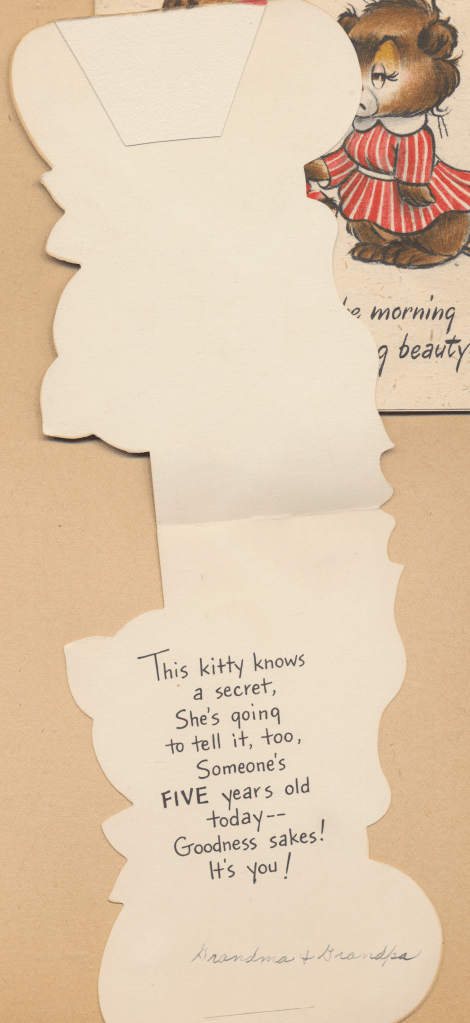 he morning
g beauty
This kitty knows
a secret,
She's going
to tell it, too,
Someone's
FIVE years old
today--
Goodness sakes!
It's you!
Grandma & Grandpa